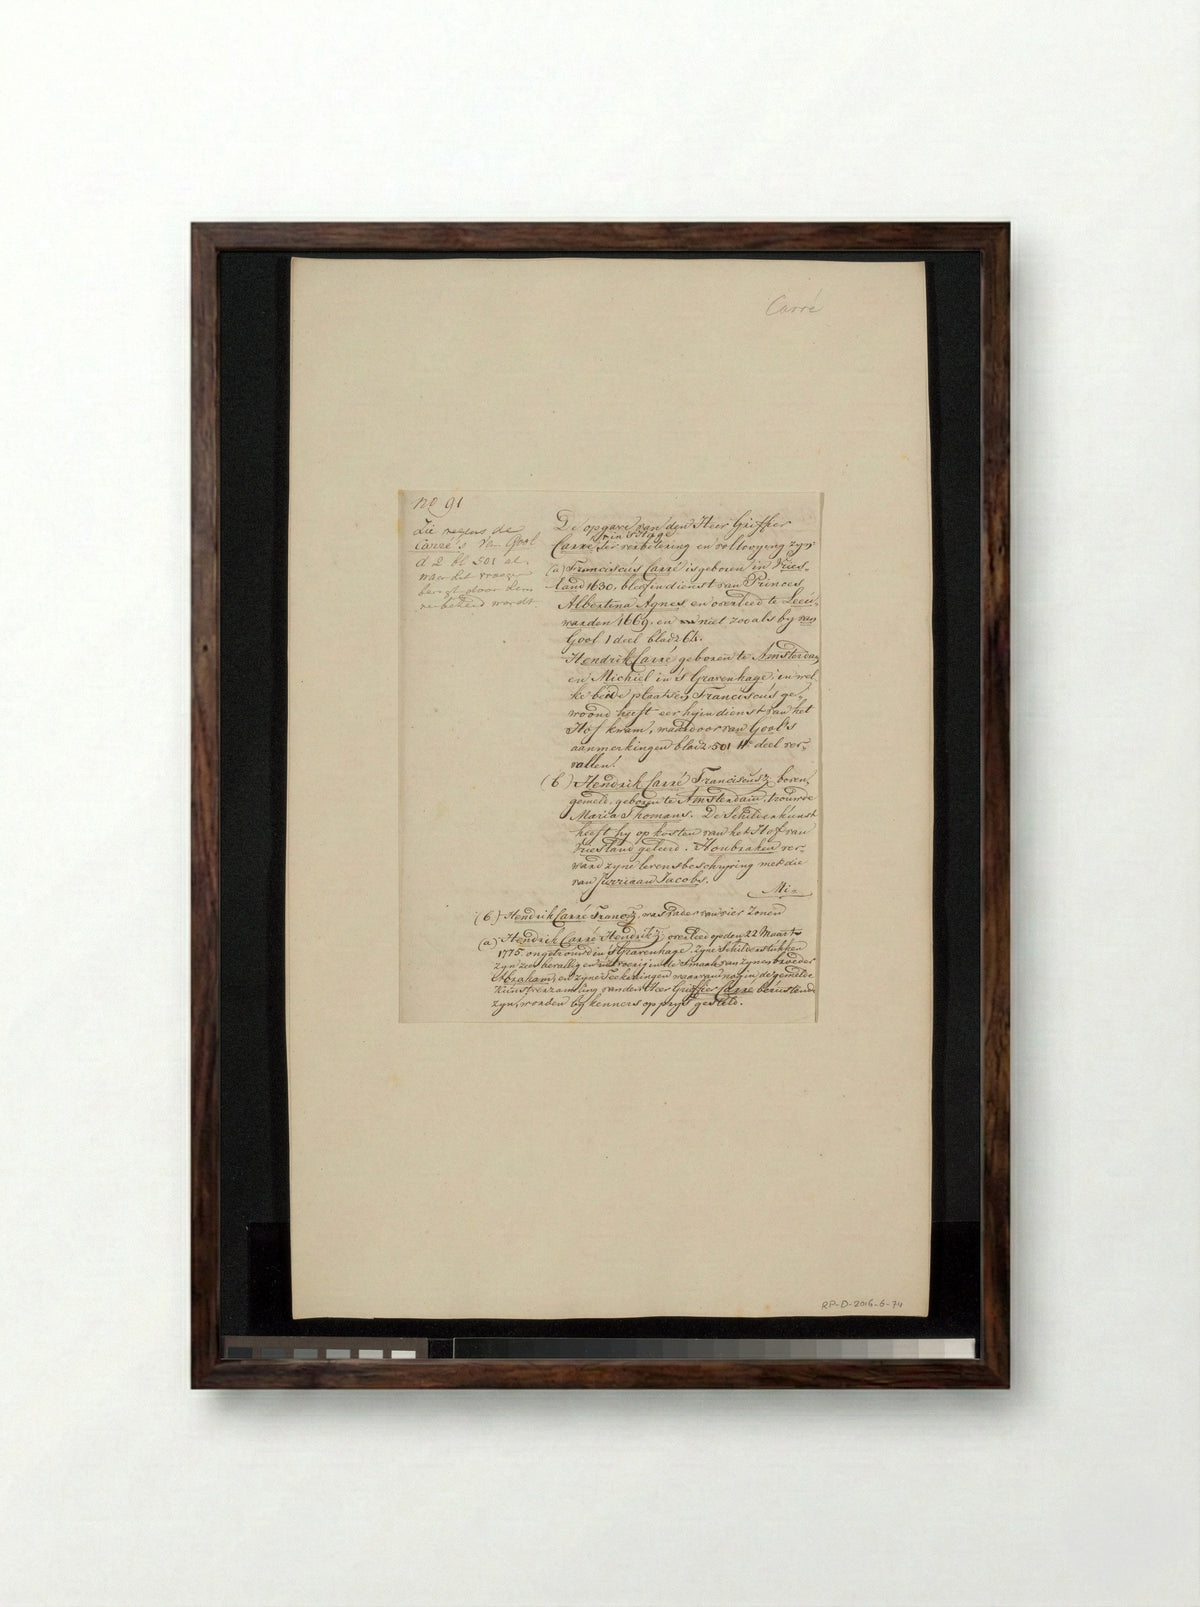 Carré
no 91
Zie wegens de
Carré's Van Gool
d 2 bl 501 al-
waar het vroeger
berigt door hem
verbeterd wordt
De opgave van den Heer Griffier
in 's Hage
Carré, ter verbetering en voltooying zyn
(a) Franciscus Carré is geboren in Vries-
land 1630, bleef in dienst van Princes
Albertina Agnes en overleed te Leeu-
warden 1669. en niet zooals by van
Gool 1 deel bladz 64.
Hendrik Carré geboren te Amsterdam
en Michiel in 's Gravenhage, in wel-
ke beide plaatsen Franciscus ge-
woond heeft eer hy in dienst van het
Hof kwam, waardoor van Gool's
aanmerkingen bladz 501 IIe deel ver-
vallen.
(b) Hendrik Carré Franciscusz boven-
gemeld, geboren te Amsterdam, trouwde
Maria Thomans. De Schilderkunst
heeft hy op kosten van het Hof van
Vriesland geleerd. Houbraken ver-
ward zyne levensbeschryving met die
van Jurriaan Jacobs.
Mi=
(b) Hendrik Carré Fransz, was vader van vier Zonen
(a) Hendrik Carré Hendriksz overleed op den 22 Maart
1775, ongetrouwd in 's Gravenhage. Zyne Schilderstukken
zyn zeer bevallig en in de smaak van zynen broeder
Abraham, en zyne Teekeningen waarvan nog in de gemelde
Kunstverzameling van den Heer Griffier Carré berustende
zyn, worden by kenners op prys gesteld.
RP-D-2016-6-74